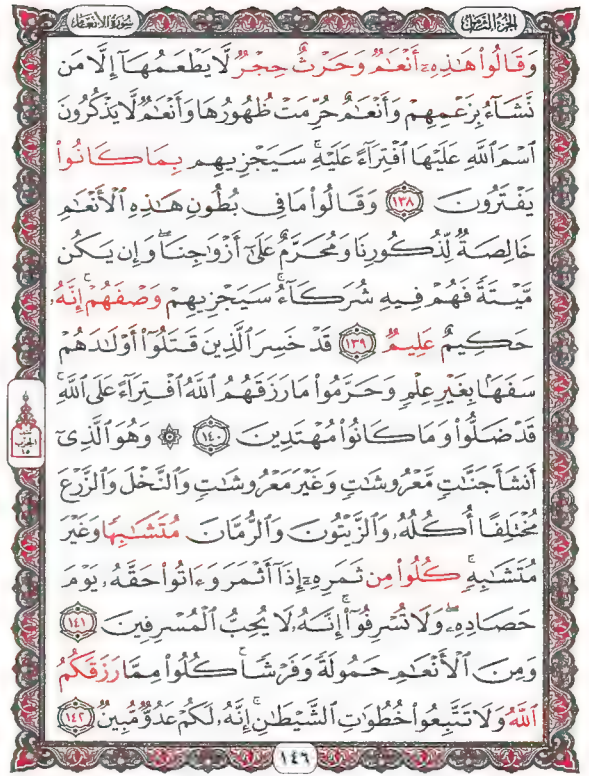 سُورَةُ الأَنْعَامِ
الجُزْءُ الثَّامِنُ
وَقَالُوا۟ هَٰذِهِۦٓ أَنْعَٰمٌ وَحَرْثٌ حِجْرٌ لَّا يَطْعَمُهَآ إِلَّا مَن
نَّشَآءُ بِزَعْمِهِمْ وَأَنْعَٰمٌ حُرِّمَتْ ظُهُورُهَا وَأَنْعَٰمٌ لَّا يَذْكُرُونَ
ٱسْمَ ٱللَّهِ عَلَيْهَا ٱفْتِرَآءً عَلَيْهِ ۚ سَيَجْزِيهِم بِمَا كَانُوا۟
يَفْتَرُونَ ١٣٨ وَقَالُوا۟ مَا فِى بُطُونِ هَٰذِهِ ٱلْأَنْعَٰمِ
خَالِصَةٌ لِّذُكُورِنَا وَمُحَرَّمٌ عَلَىٰٓ أَزْوَٰجِنَا ۖ وَإِن يَكُن
مَّيْتَةً فَهُمْ فِيهِ شُرَكَآءُ ۚ سَيَجْزِيهِمْ وَصْفَهُمْ ۚ إِنَّهُۥ
حَكِيمٌ عَلِيمٌ ١٣٩ قَدْ خَسِرَ ٱلَّذِينَ قَتَلُوٓا۟ أَوْلَٰدَهُمْ
سَفَهًۢا بِغَيْرِ عِلْمٍ وَحَرَّمُوا۟ مَا رَزَقَهُمُ ٱللَّهُ ٱفْتِرَآءً عَلَى ٱللَّهِ ۚ
قَدْ ضَلُّوا۟ وَمَا كَانُوا۟ مُهْتَدِينَ ١٤٠ ۞ وَهُوَ ٱلَّذِىٓ
أَنشَأَ جَنَّٰتٍ مَّعْرُوشَٰتٍ وَغَيْرَ مَعْرُوشَٰتٍ وَٱلنَّخْلَ وَٱلزَّرْعَ
مُخْتَلِفًا أُكُلُهُۥ وَٱلزَّيْتُونَ وَٱلرُّمَّانَ مُتَشَٰبِهًا وَغَيْرَ
مُتَشَٰبِهٍ ۚ كُلُوا۟ مِن ثَمَرِهِۦٓ إِذَآ أَثْمَرَ وَءَاتُوا۟ حَقَّهُۥ يَوْمَ
حَصَادِهِۦ ۖ وَلَا تُسْرِفُوٓا۟ ۚ إِنَّهُۥ لَا يُحِبُّ ٱلْمُسْرِفِينَ ١٤١
وَمِنَ ٱلْأَنْعَٰمِ حَمُولَةً وَفَرْشًا ۚ كُلُوا۟ مِمَّا رَزَقَكُمُ
ٱللَّهُ وَلَا تَتَّبِعُوا۟ خُطُوَٰتِ ٱلشَّيْطَٰنِ ۚ إِنَّهُۥ لَكُمْ عَدُوٌّ مُّبِينٌ ١٤٢
الحِزْب
١٥
١٤٦